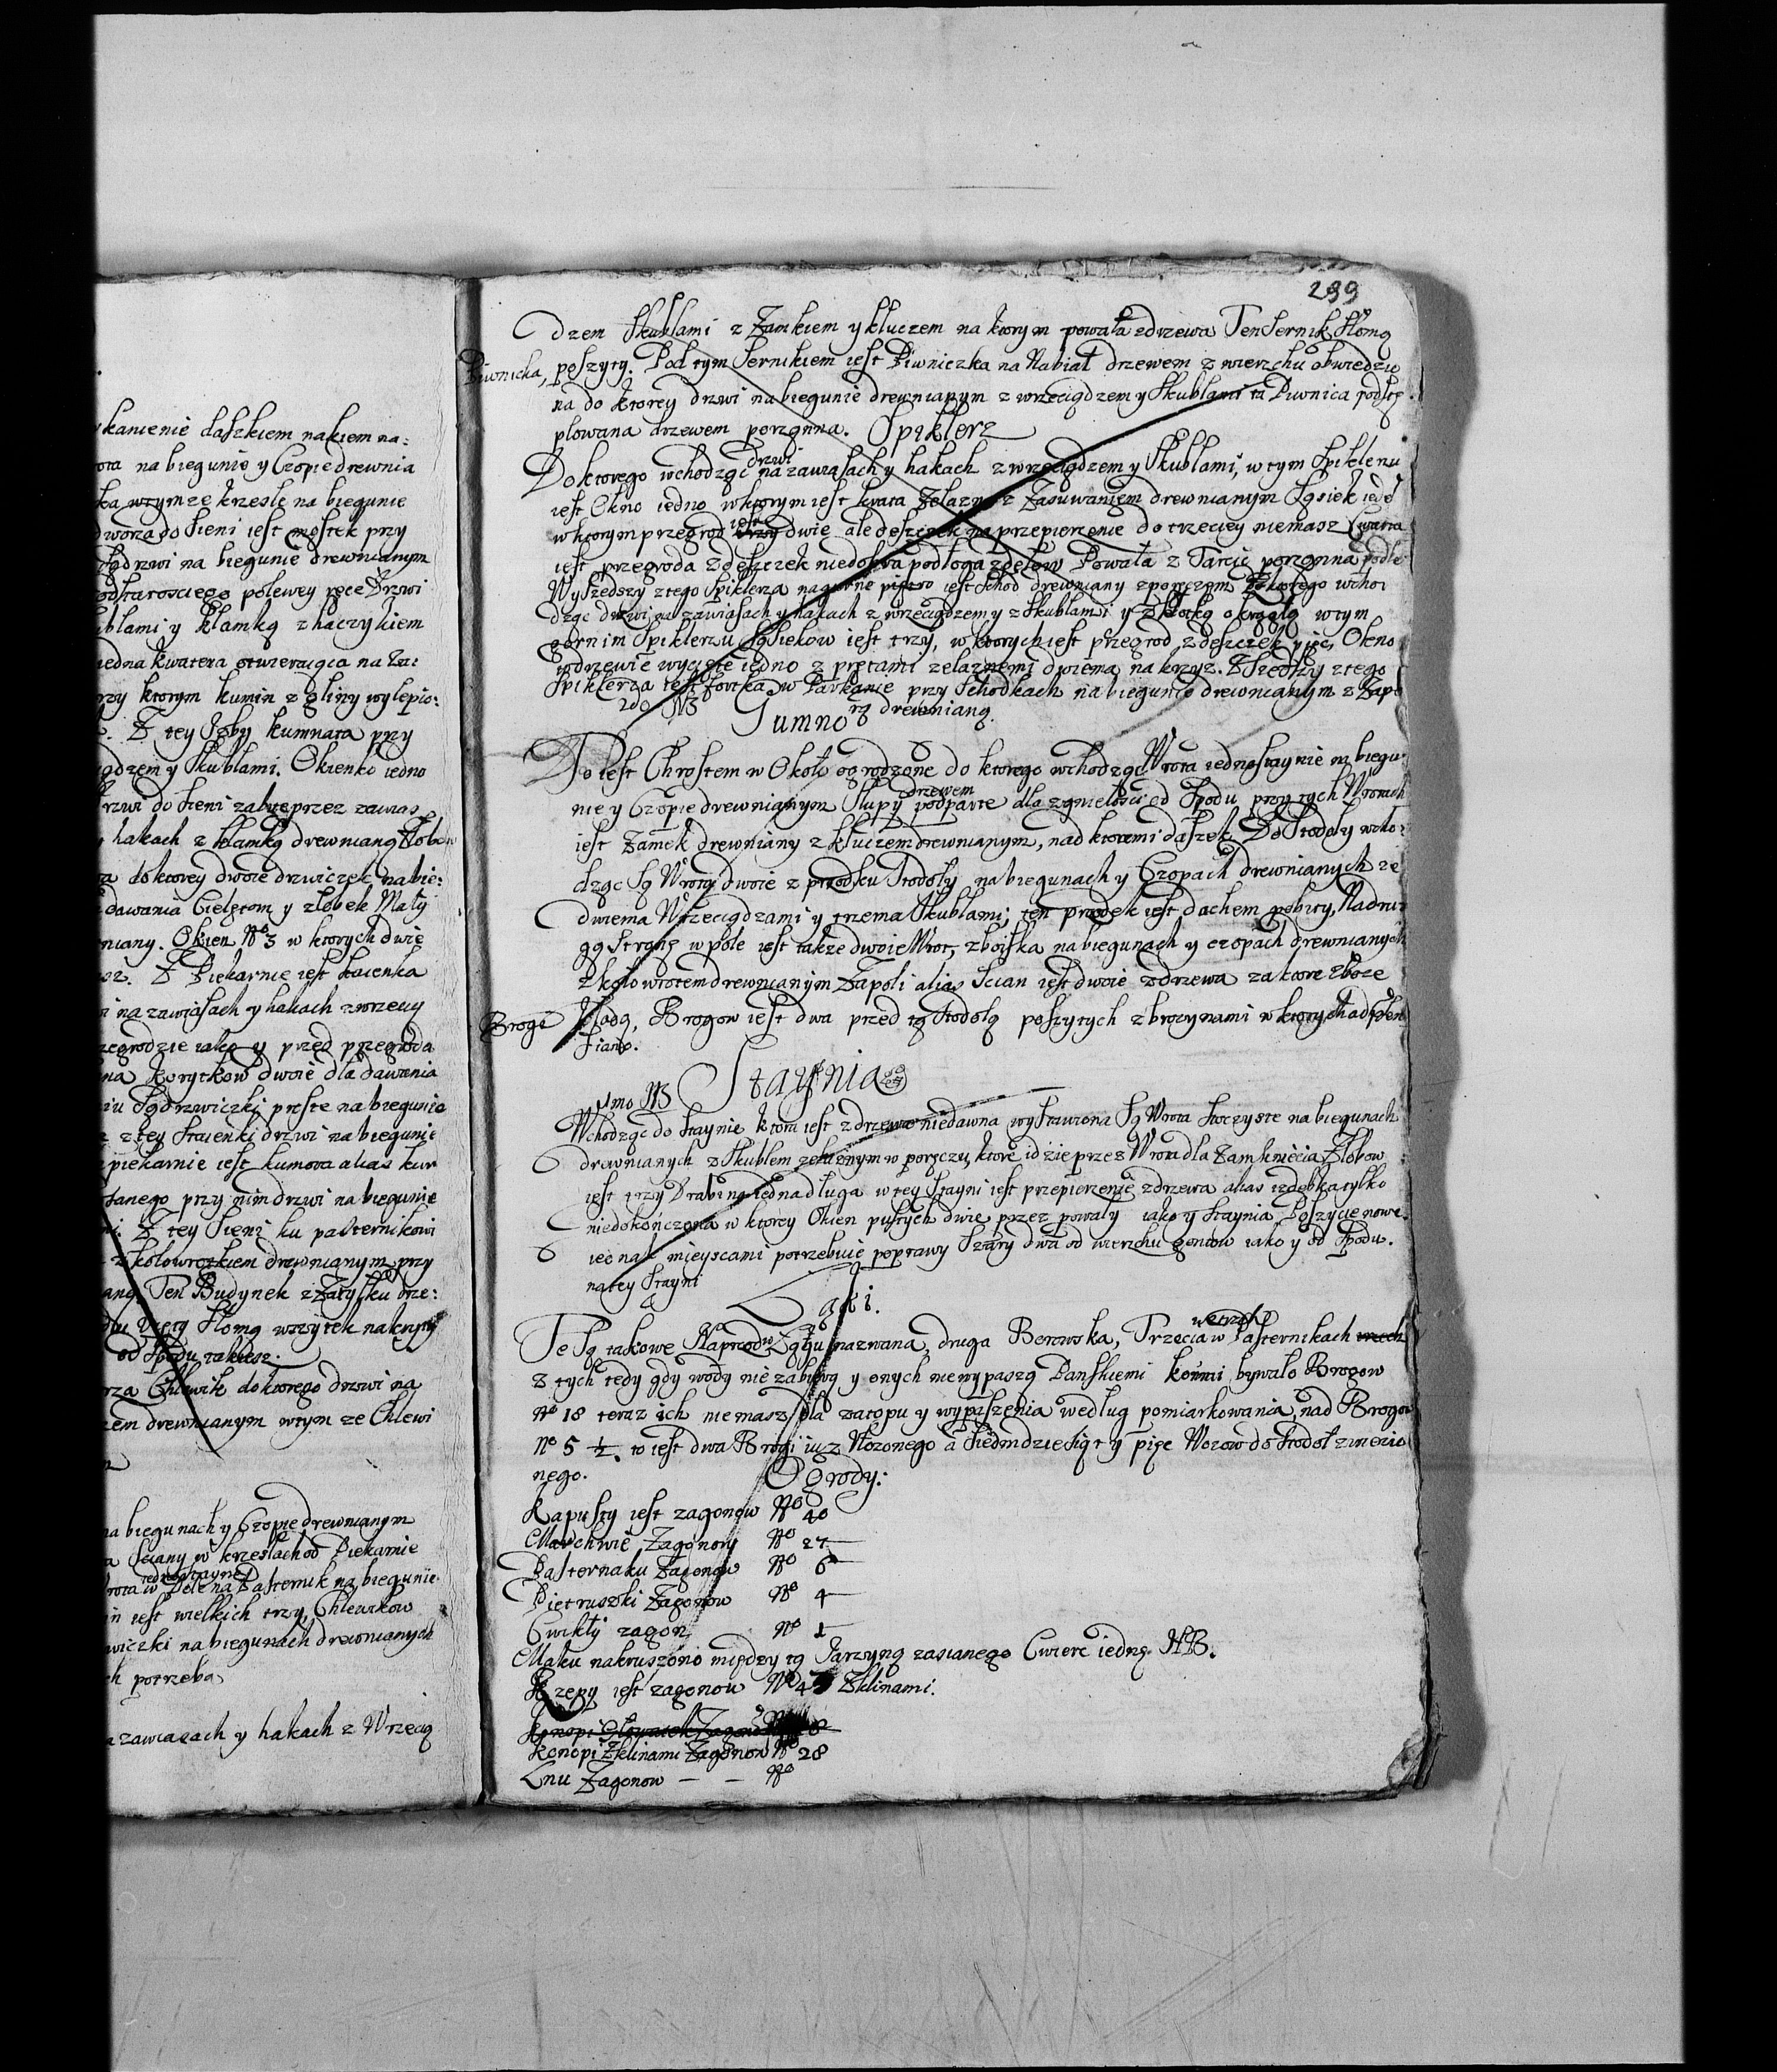 kanienie daszkiem nakiem na:
rota na biegunie y Czopie drewnia
ka wtym ze krzesle na biegunie
dworza do sieni iest mostek przy
drzwi na biegunie drewnianym
podstarosciego polewey ręce Drzwi
ublami y klamką z haczykiem
iedna kwatera otwieraiąca na Za:
rzy ktorym kumin z gliny wylepio:
Z tey Izby kumnata przy
dzem y Skublami. Okienko iedno
rzwi do sieni zabite przez zawias
hakach z klamką drewnianą Złob
a do ktorey dwoie drzwiczek na bie:
dawania Cielętom y złobek Mały
niany. Okien No 3 w ktorych dwie
sz. Z Piekarnie iest staienka
i na zawiasach y hakach z wrzecią
zegrodzie iako y przed przegrodą
na korytkow dwoie dla dawania
iu są drzwiczki proste na biegunie
z tey staienki drzwi na biegunie
piekarnie iest kumora alias kur
sanego przy nim drzwi na biegunie
ni. Z tey sieni ku pasternikowi
z kołowrotkiem drewnianym przy
aną. Ten Budynek z Zatyłku drze:
słomą wszytek nakryty
od spodu takiesz.
rza Chlewik do ktorego drzwi na
zem drewnianym wtym ze Chlewi
na biegunach y Czopie drewnianym
a sciany w krzesłach od Piekarnie
iednostayne
rota w Pole na Pasternik na biegunie
in iest wielkich trzy, Chlewkow
wiczki na biegunach drewnianych
ch potrzeba
a zawiasach y hakach z Wrzecią
299
dzem Skublami z Zamkiem y kluczem na ktorym powała z drzewa Ten Sernik słomą
Piwnicka, poszyty. Pod tym Sernikiem iest Piwniczka na Nabiał drzewem z wierzchu obwiedzio
na do ktorey drzwi na biegunie drewnianym z wrzeciądzem y Skublami ta Piwnica podstę
plowana drzewem porznna. Spiklerz
drzwi
Do ktorego wchodząc na zawiasach y hakach z wrzeciądzem y Skublami, w tym Spiklerzu
iest Okno iedno w ktorym iest krata żelazna z Zasuwaniem drewnianym Sąsiek ied
iest
w ktorym przegrod trzy dwie ale deszczek na przepierzenie do trzeciey niemasz Czwarta
iest przegroda z deszczek niedobra podłoga z delow Powała z Tarcic porznna podle
Wyszedszy z tego Spiklerza na gorne piętro iest Schod drewniany z poręczem Do ktorego wchoi
dząc drzwi na zawiasach y hakach z wrzeciądzem y z Skublami y z kłotką okrągłą w tym
gornim Spiklerzu Sąsiekow iest trzy, w ktorych iest przegrod z deszczek pięc, Okno
w drzewie wycięte iedno z prętami zelaznemi dwiema na krzyz. Zszedszy z tego
Spiklerza iest fortka w Parkanie przy Schodkach na biegunie drewnianym z Zapo
rą drewnianą.
2do NB Gumno
To iest Chrostem w Około ogrodzone do ktorego wchodząc Wrota iednostaynie na biegu:
drzewem
nie y Czopie drewnianym Słupy podparte dla zgniełosci od Spodu przy tych Wrotach
iest Zamek drewniany z kluczem drewnianym, nad ktoremi daszek. Do Stodoły wcho:
dząc są Wroty dwoie z przodku Stodoły na biegunach y Czopach drewnianych ze
dwiema Wrzeciądzami y trzema Skublami; ten przodek iest dachem pobity, Na dru:
gą stronę w pole iest takze dwoie Wrot, zboiska na biegunach y czopach drewnianych
z kołowrotem drewnianym Zapoli alias Scian iest dwoie z drzewa za ktore zboze
Brogi kładą, Brogow iest dwa przed tą Stodołą poszytych z browynami w ktorych
siano.
1mo NB Staynia
Wchodząc do Staynie ktora iest z drzewa niedawna wystawiona Są Wrota stoczyste na biegunach
drewnianych z Skublem zelaznym w poręczu, ktore idzie przez Wrota dla Zamknięcia Złobow
iest trzy Drabina iedna długa w tey Stayni iest przepierzenie z drzewa alias izdebka tylko
niedokończona w ktorey Okien pustych dwie przez powały iako y Staynia Poszycie nowe.
iednak mieyscami potrzebuie poprawy Szary dwa od wierzchu gontow iako y od Spodu.
na tey Stayni
Łąki.
wszech
Te są takowe Naprzod w Zgłu nazwana, druga Berowska, Trzecia w Pasternikach
Z tych tedy gdy wody nie zabiorą y onych niewypaszą Panskiemi końmi bywało Brogow
No 18 teraz ich niemasz dla zatopu y wypaszenia według pomiarkowania, nad Brogow
No 5 ½. to iest dwa Brogi iuz Włozonego a siedmdziesiąt y pięc Wozow do Stodoł zwiezio
nego. Ogrody:
Kapusty iest zagonow No 40
Marchwie Zagonow No 27
Pasternaku Zagonow No 6
Pietruszki Zagonow No 4
Cwikły zagon No 1
Maku nakruszono między tą Jarzyną zasianego Cwierc iednę. NB.
Rzepy iest zagonow No 4 Zklinami.
Konopi Głowatek Zagonow
Konopi Zklinami Zagonow No 28
Lnu Zagonow — — No